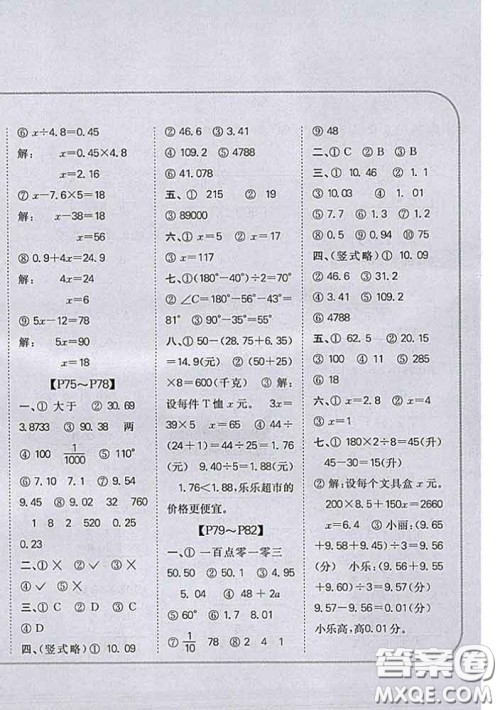 ⑥ x÷4.8=0.45
解： x=0.45×4.8
x=2.16
⑦ x-7.6×5=18
解： x-38=18
x=56
⑧ 0.9+4x=24.9
解： 4x=24
x=6
⑨ 5x-12=78
解： 5x=90
x=18
【P75～P78】
一、① 大于 ② 30.69
3.8733 ③ 90.38 两
④ 100 1/1000 ⑤ 110°
⑥ 7.10 7.1 ⑦ 9.52
9.45 ⑧ 9 10 ⑨ 160
1 8 2 520 0.25
0.23
二、① × ② × ③ ×
④ ✓ ⑤ ×
三、① C ② D ③ A
④ D
四、(竖式略) ① 10.09
② 46.6 ③ 3.41
④ 109.2 ⑤ 4788
⑥ 41.078
五、① 215 ② 19
③ 89000
六、① x=9 ② x=6
③ x=119
七、① (180°-40°)÷2=70°
② ∠C=180°-56°-43°=
81° ③ 90°-32°=58°
八、① 50-(28.75+6.35)
=14.9(元) ② (50+25)
×8=600(千克) ③ 解：
设每件T恤x元。
4x+4×20=256
x=44 ④ 44÷
(24+1)=44÷25=1.76
(元) 9.40÷5=1.88(元)
1.76<1.88，乐乐超市的
价格更便宜。
【P79～P82】
一、① 一百点零一零三
50.50 ② 50.1 ③ 4.95
5.04 ④ 48+2a
⑤ 60° ⑥ 6.8 8.6
⑦ 1/10 78 ⑧ 9 90
⑨ 48
二、① C ② B ③ C
三、① 10.46 ② 1.1
③ 10.03 ④ 1 ⑤ 15
⑥ 0.71 ⑦ 1.3 ⑧ 7
⑨ 0.5 ⑩ 0.94 ⑪ 75
四、(竖式略) ① 10.09
② 46.6 ③ 3.41
④ 109.2 ⑤ 0.08
⑥ 4788
五、① 62.5 ② 10
③ 125 ④ 20.4
六、① x=2.8 ② x=4
③ x=1
七、① 180×2÷8=45(升)
45-30=15(升)
② 解：设每个文具盒x元。
200×8.5+150x=2660
x=6.4 ③ 小丽：(9.65
+9.58+9.45)÷3=9.56
(分) 小乐：(9.56+9.55
+9.60)÷3=9.57(分)
9.57-9.56=0.01(分)
小乐高，高0.01分。
答案圈
MXQE.COM